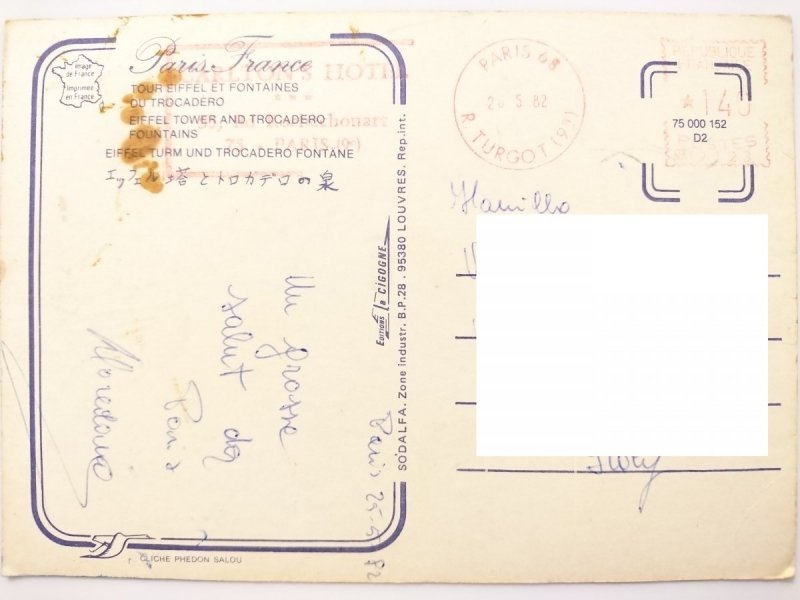 Image
de France
Imprimée
en France
Paris-France
CARLTON'S HOTEL
***
TOUR EIFFEL ET FONTAINES
DU TROCADERO
EIFFEL TOWER AND TROCADERO
FOUNTAINS
PARIS (9e)
EIFFEL TURM UND TROCADERO FONTANE
エッフェル塔とトロカデロの泉
Un grosse
salut da
Paris
Paris 25-5-82
CLICHE PHEDON SALOU
EDITIONS la CIGOGNE
SODALFA. Zone industr. B.P.28 . 95380 LOUVRES. Rep.int.
PARIS 68
26 5 82
R. TURGOT (9E)
REPUBLIQUE
FRANÇAISE
140
POSTES
75 000 152
D2
Italy